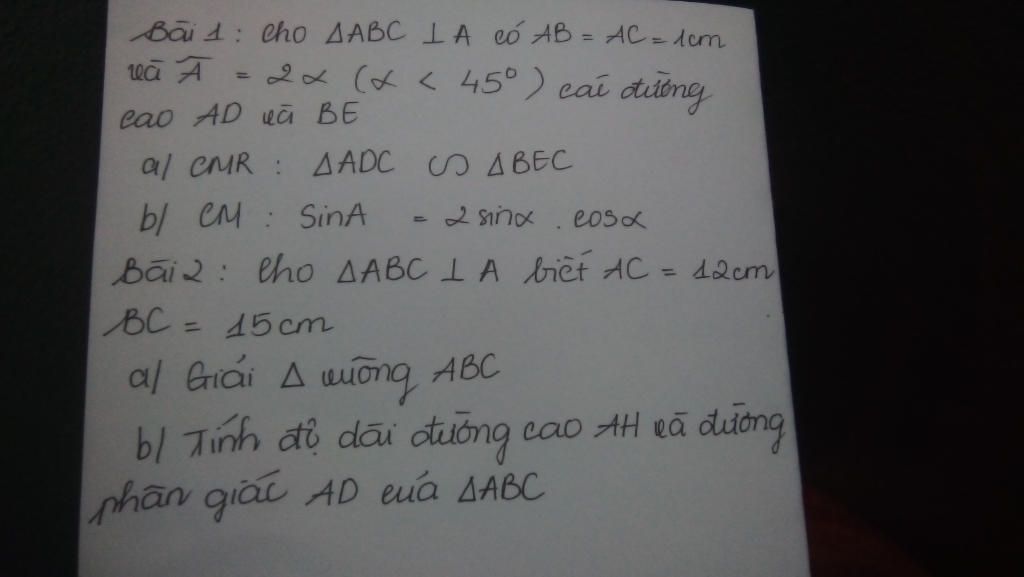 Bài 1 : Cho ΔABC ⊥ A có AB = AC = 1cm
và Â = 2α (α < 45°) các đường
cao AD và BE
a/ CMR : ΔADC ∽ ΔBEC
b/ CM : SinA = 2 sinα . cosα
Bài 2 : Cho ΔABC ⊥ A biết AC = 12cm
BC = 15cm
a/ Giải Δ vuông ABC
b/ Tính độ dài đường cao AH và đường
phân giác AD của ΔABC